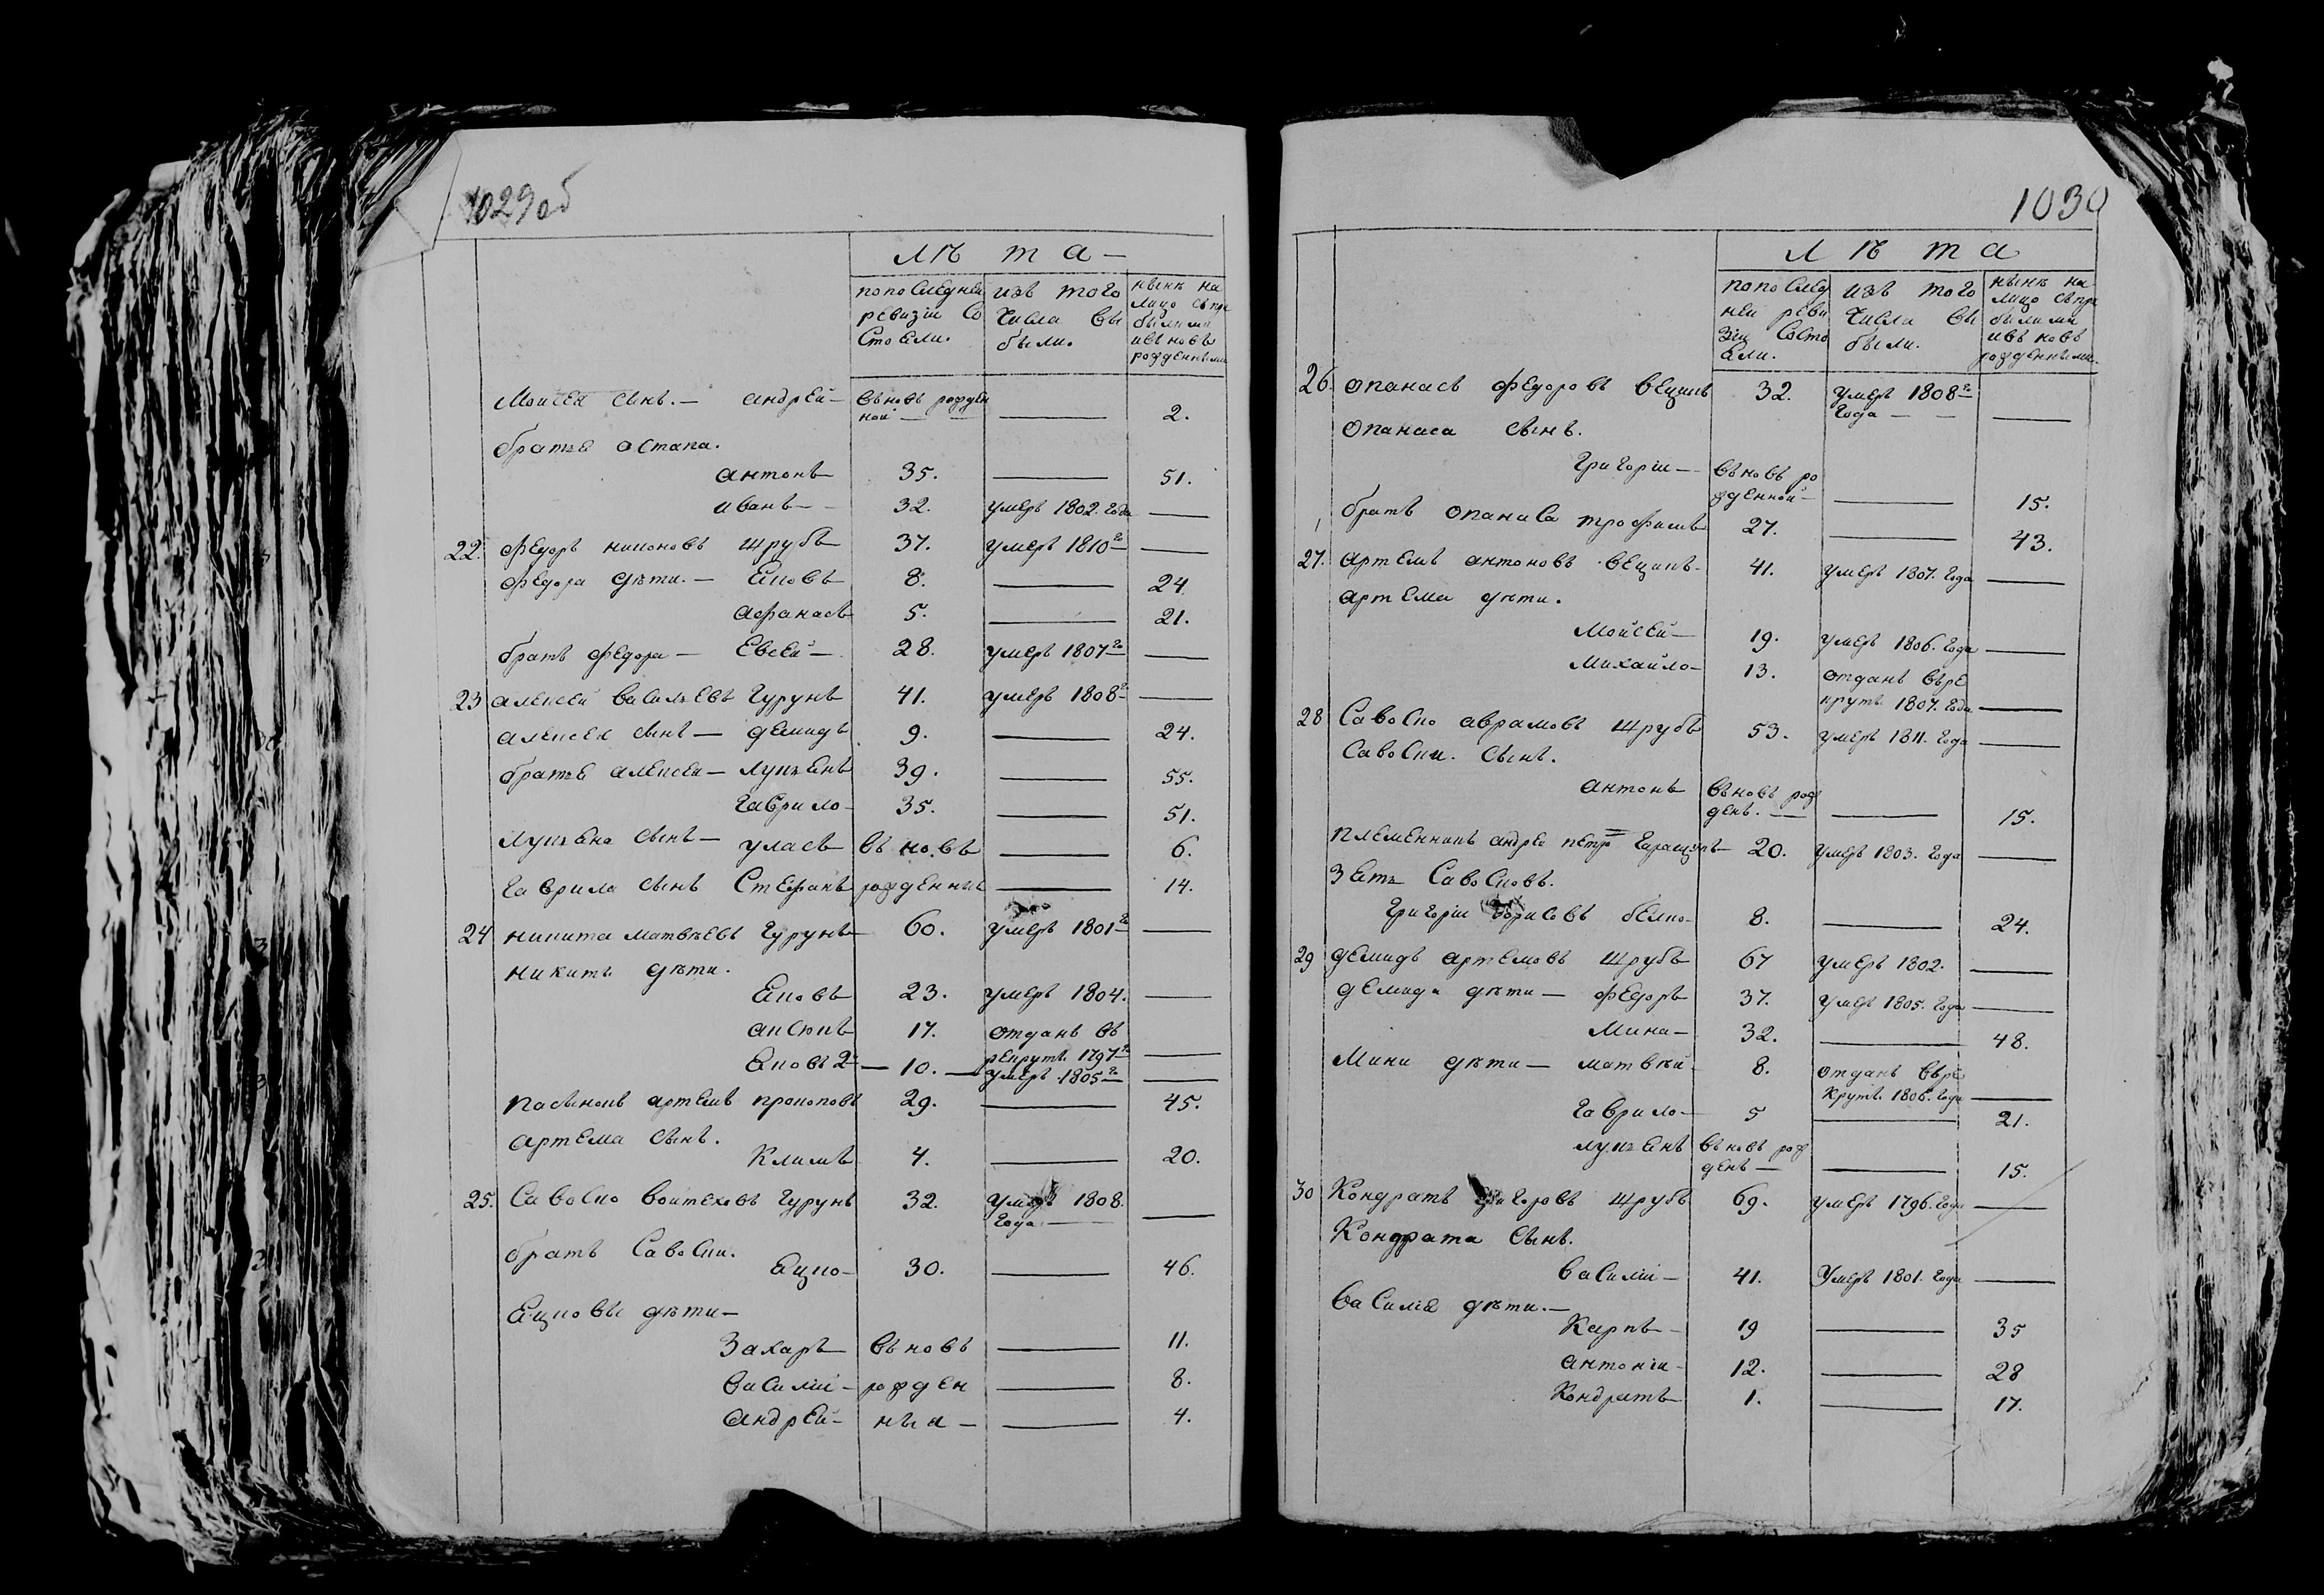 1029об
лѣта
по последней ревизіи состояли.
изъ того числа выбыли.
нынѣ на лицо съ прибылыми и вновь рожденными
Моисея сынъ. — андрей — вновь рожденной — — 2.
братья остапа.
антонъ 35. — 51.
иванъ — 32. умеръ 1802. года —
22. Федоръ никоновъ щрубъ 37. умеръ 1810го —
Федора дѣти. — Яковъ 8. — 24.
афанасъ 5. — 21.
братъ Федора — Евсей — 28. умеръ 1807го —
23 алексей васильевъ гурунъ 41. умеръ 1808го —
алексея сынъ — демидъ 9. — 24.
братья алексея — лукьянъ 39. — 55.
гаврило — 35. — 51.
лукьяна сынъ — уласъ вновь — 6.
гаврила сынъ Стефанъ рожденные — 14.
24 никита матвѣевъ гурунъ — 60. умеръ 1801го —
никиты дѣти.
Яковъ 23. умеръ 1804. —
аксюкъ 17. отданъ въ рекруты. 1797го —
Яковъ 2й — 10. — умеръ 1805го —
пасынокъ артемъ прокоповъ 29. — 45.
артема сынъ.
Климъ 4. — 20.
25. Савоско войтеховъ гурунъ 32. умеръ 1808. года —
братъ Савоски.
Яцко — 30. — 46.
Яцковы дѣти —
Захаръ вновь — 11.
василій — рожден — 8.
андрей — ныя — — 4.
1030
лѣта
по последней ревизіи состояли.
изъ того числа выбыли.
нынѣ на лицо съ прибылыми и вновь рожденными.
26. опанасъ федоровъ вецикъ 32. умеръ 1808го года — —
Опанаса сынъ.
григорій — вновь рожденной — — 15.
братъ опанаса трофимъ 27. — 43.
27. артемъ антоновъ вецикъ 41. умеръ 1807. года —
артема дѣти.
Мойсей — 19. умеръ 1806. года —
Михайло — 13. отданъ въ рекруты 1807. года —
28 Савоско аврамовъ щрубъ 53. умеръ 1811. года —
Савоски. сынъ.
антонъ вновь рожденъ. — — 15.
племенникъ андрей петро 20. умеръ 1803. года —
Зять Савосковъ.
григорій борисовъ 8. — 24.
29 демидъ артемовъ щрубъ 67 умеръ 1802. —
демида дѣти — федоръ 37. умеръ 1805. года —
Мина — 32. — 48.
Мини дѣти — матвѣй 8. отданъ въ рекруты. 1806. года —
гаврило — 5 — 21.
лукьянъ вновь рожденъ — — 15.
30 Кондратъ григоровъ щрубъ 69. умеръ 1796. года —
Кондрата сынъ.
василій — 41. Умеръ 1801. года —
василія дѣти. —
Карпъ — 19 — 35
антоній — 12. — 28
Кондратъ — 1. — 17.